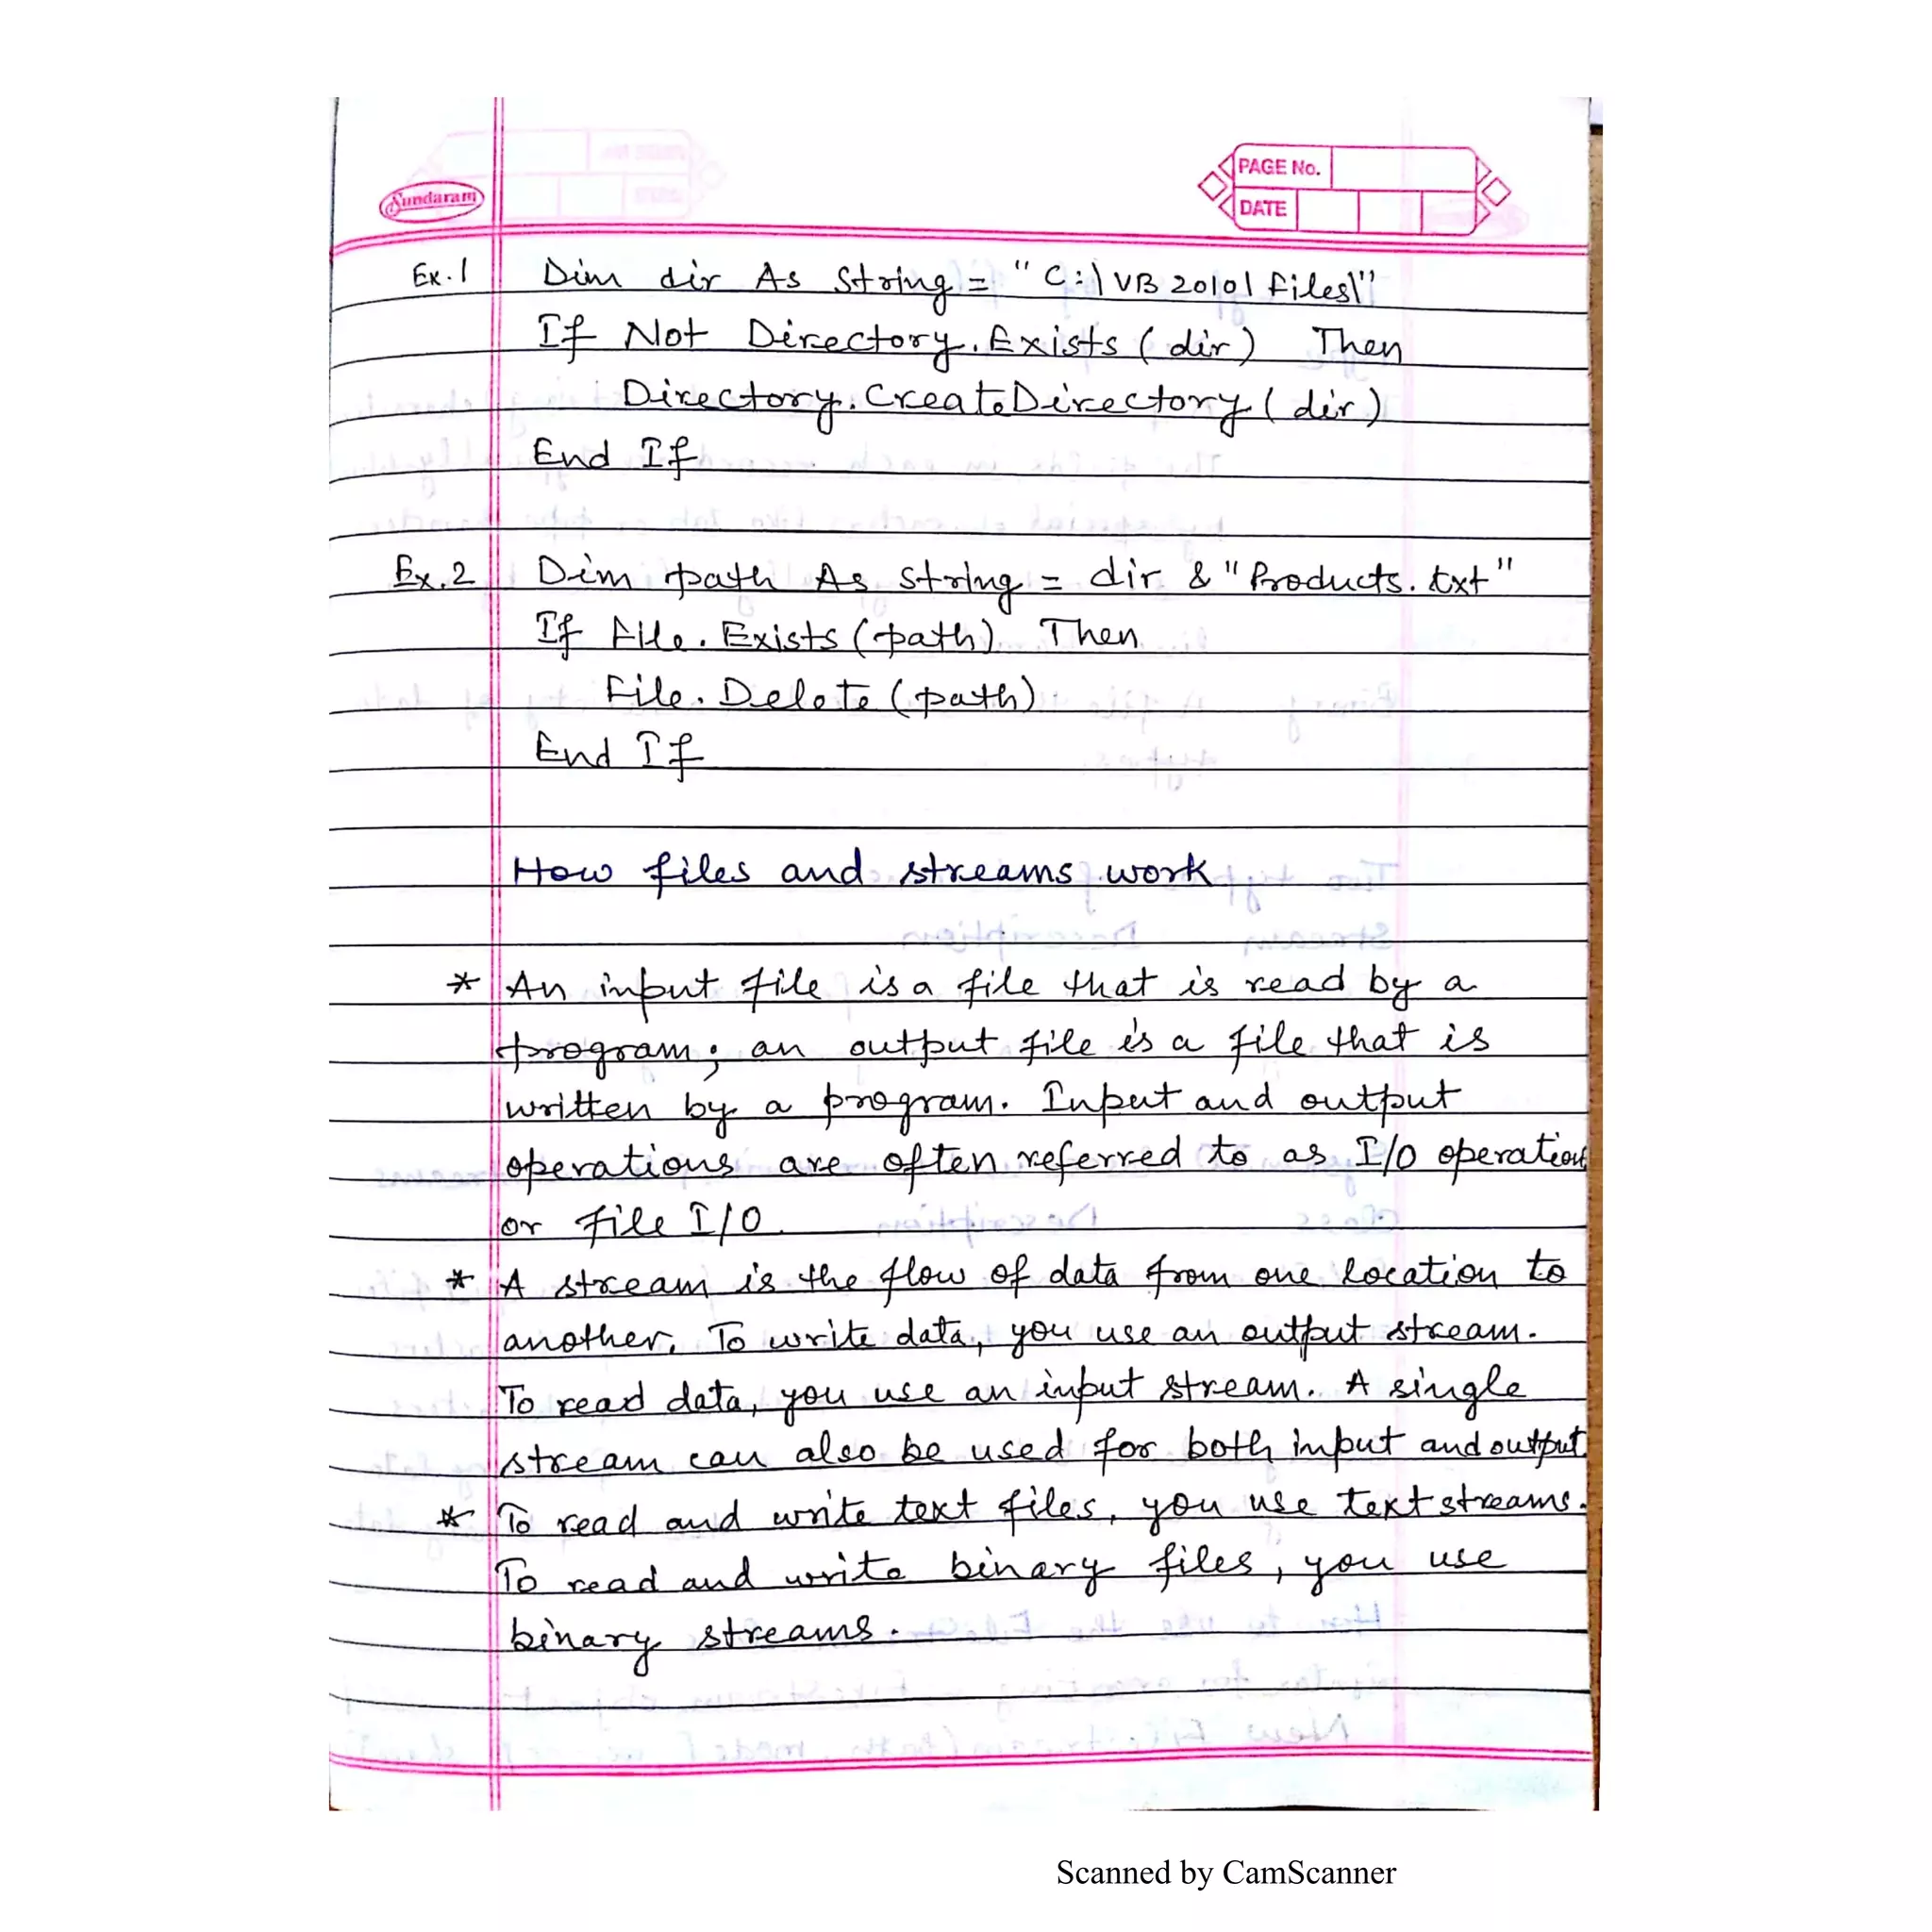 Sundaram
PAGE No.
DATE
Ex.1 Dim dir As String = "C:\VB 2010\Files\"
If Not Directory.Exists (dir) Then
Directory.CreateDirectory (dir)
End If
Ex.2 Dim path As String = dir & "Products.txt"
If File.Exists (path) Then
File.Delete (path)
End If
How files and streams work
* An input file is a file that is read by a
program; an output file is a file that is
written by a program. Input and output
operations are often referred to as I/O operations
or file I/O.
* A stream is the flow of data from one location to
another. To write data, you use an output stream.
To read data, you use an input stream. A single
stream can also be used for both input and output
* To read and write text files, you use text streams.
To read and write binary files, you use
binary streams.
Scanned by CamScanner